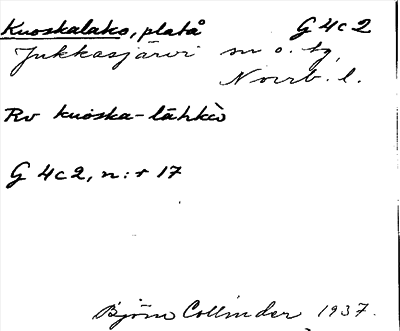 Kuoskalako, platå G4c2
Jukkasjärvi sn o. tg,
Norrb. l.
Rv kuoska-låhkò
G 4c2, n:r 17
Björn Collinder 1937.